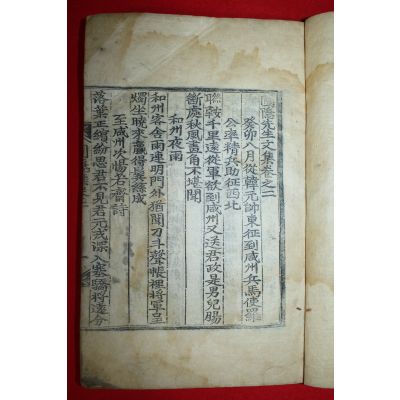 圃隱先生文集卷之二
癸卯八月從韓元帥東征到咸州兵馬使羅
公率精兵助征西北
聯鞍千里遠從軍欲到咸州又送君政是男兒腸
斷處秋風畫角不堪聞
和州夜雨
和州客舍雨連明門外猶聞刀斗聲帳裡將軍皇
燭坐曉來贏得鬢絲成
至咸州次惕若齋詩
落葉正繽紛思君不見君元戎深入塞驍將遠分